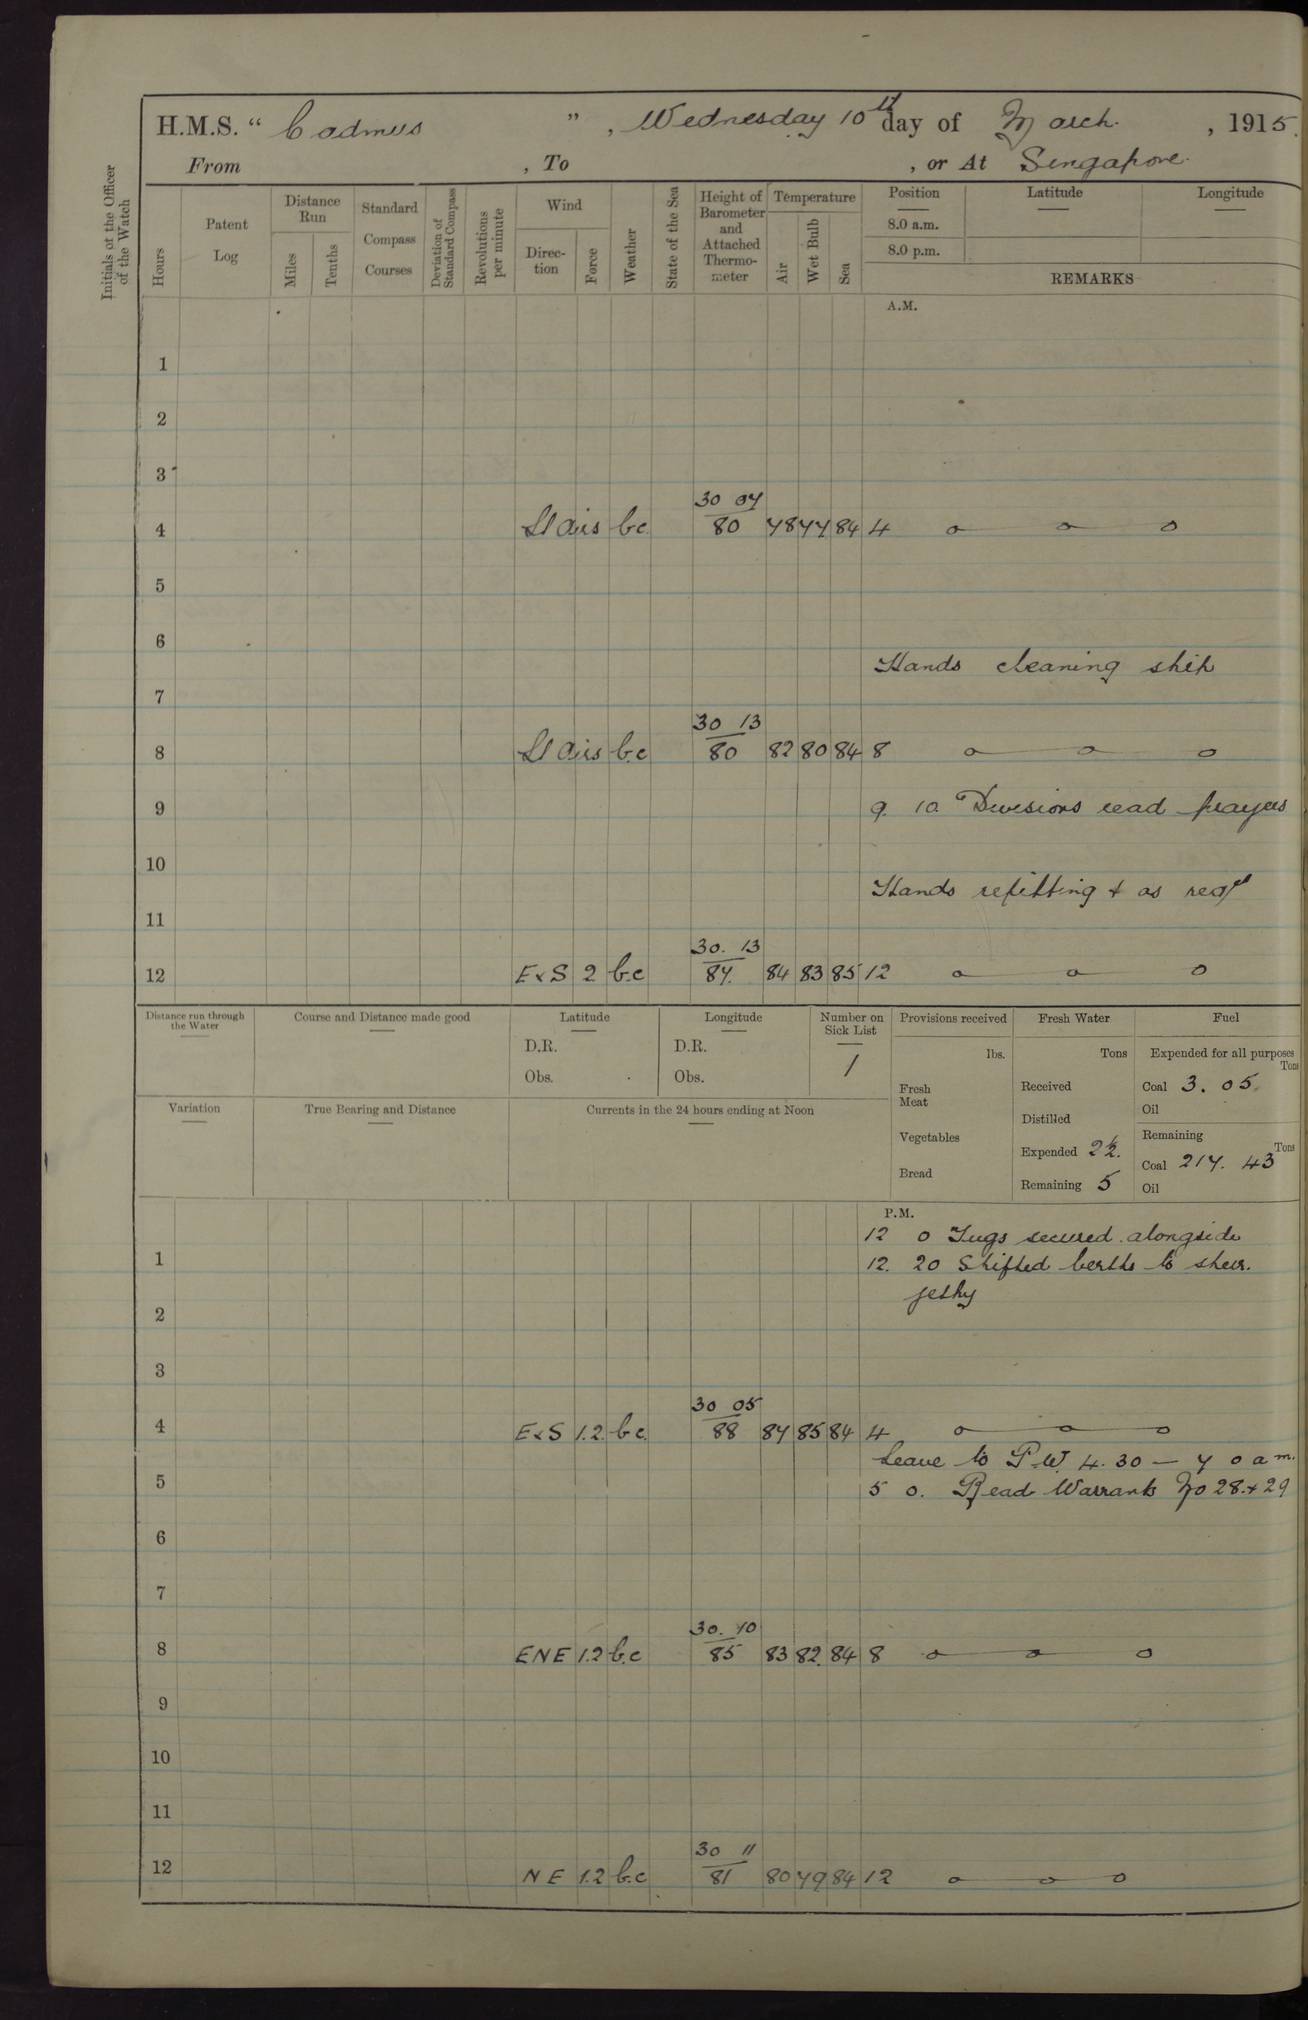 H.M.S. “ Cadmus ” , Wednesday 10th day of March. , 1915.
From , To , or At Singapore.
Initials of the Officer of the Watch
Hours
Patent Log
Distance Run
Miles
Tenths
Standard Compass Courses
Deviation of Standard Compass
Revolutions per minute
Wind
Direction
Force
Weather
State of the Sea
Height of Barometer and Attached Thermometer
Temperature
Air
Wet Bulb
Sea
Position Latitude Longitude
8.0 a.m.
8.0 p.m.
REMARKS
A.M.
1
2
3
30 07
4 Lt airs b.c. 80 78 77 84 4 o o o
5
6
Hands cleaning ship
7
30 13
8 Lt airs b.c 80 82 80 84 8 o o o
9 9. 10. Divisions read prayers
10
Hands refitting & as reqd
11
30. 13
12 E x S 2 b.c 87. 84 83 85 12 o o o
Distance run through the Water
Course and Distance made good
Latitude
D.R.
Obs.
Longitude
D.R.
Obs.
Number on Sick List
1
Provisions received
lbs.
Fresh Meat
Vegetables
Bread
Fresh Water
Tons
Received
Distilled
Expended 2½.
Remaining 5
Fuel
Expended for all purposes
Tons
Coal 3. 05.
Oil
Remaining
Tons
Coal 217. 43
Oil
Variation
True Bearing and Distance
Currents in the 24 hours ending at Noon
P.M.
12 0 Tugs secured alongside
1 12. 20 Shifted berths to sheer.
jetty
2
3
30 05
4 E x S 1.2. b.c. 88 87 85 84 4 o o o
Leave to P.W. 4.30 — 7 0 a m.
5 5 0. Read Warrants No 28. & 29
6
7
30. 10
8 ENE 1.2 b.c 85 83 82. 84 8 o o o
9
10
11
30 11
12 NE 1.2 b.c 81 80 79 84 12 o o o